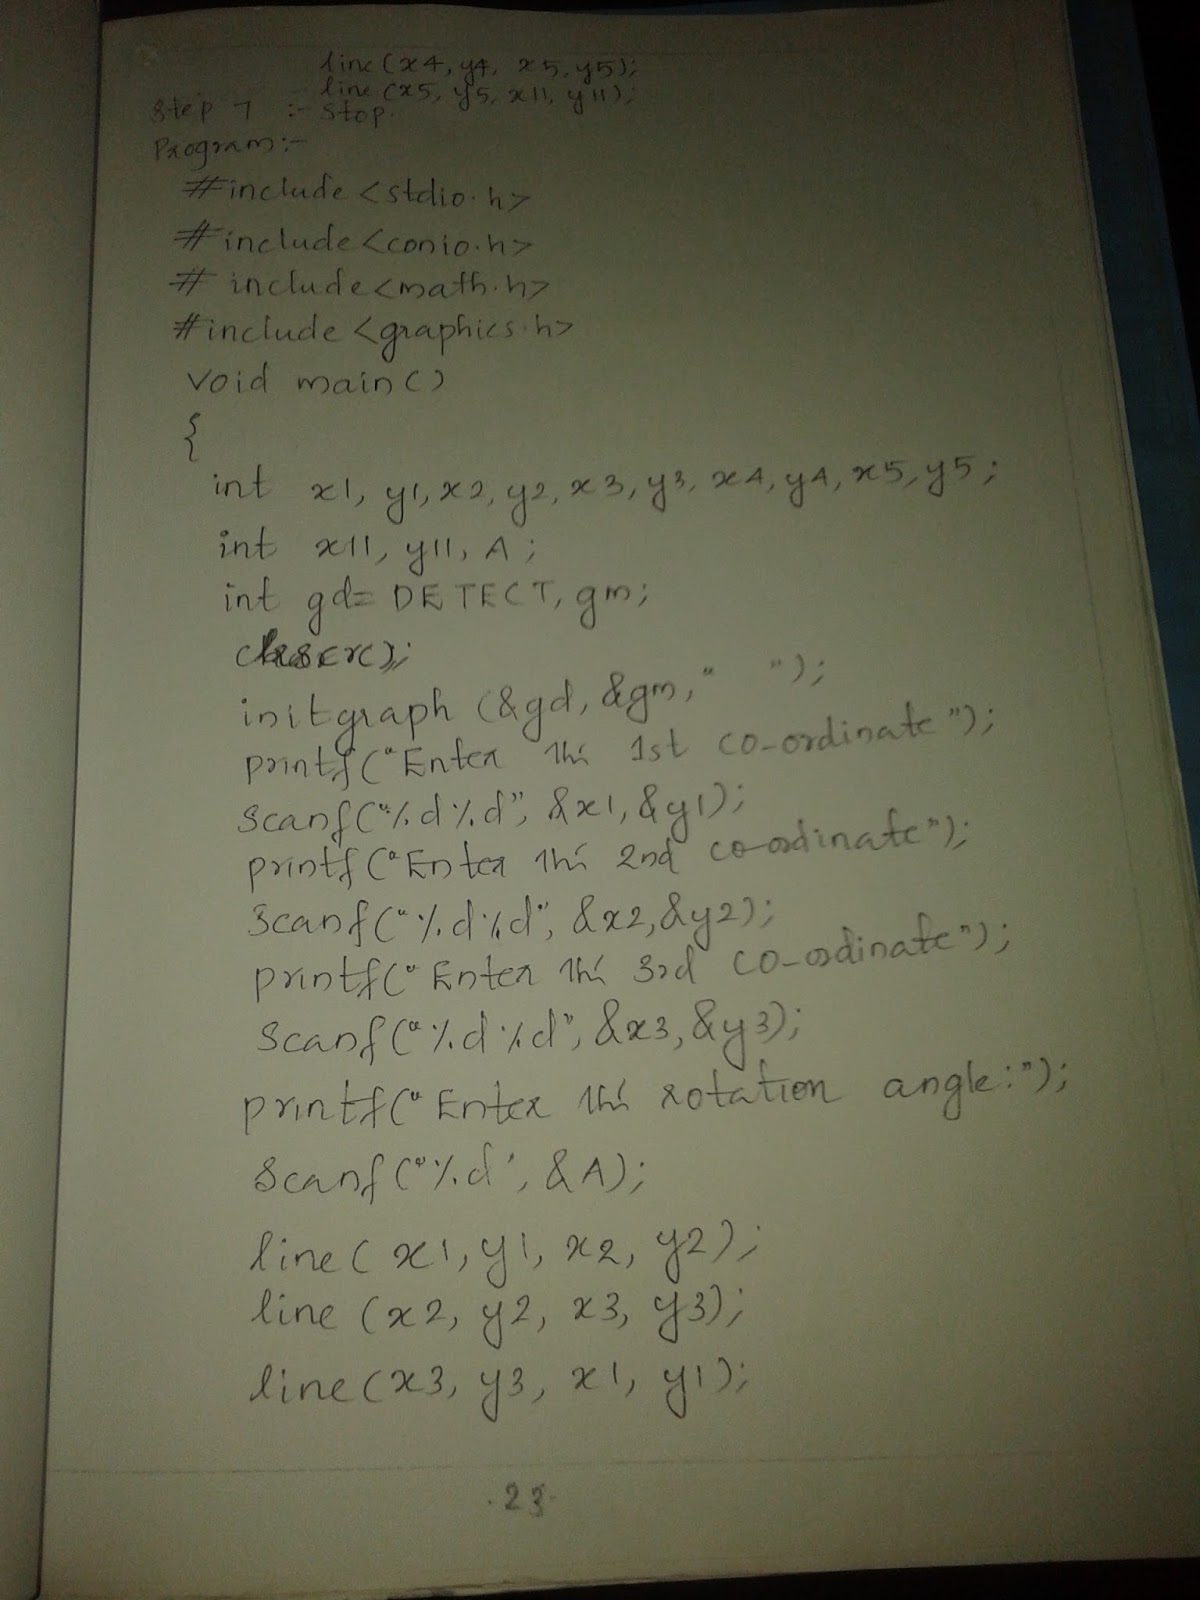 line (x4, y4, x5, y5);
line (x5, y5, x11, y11);
Step 7 :- Stop.
Program:-
#include <stdio.h>
#include <conio.h>
# include <math.h>
#include <graphics.h>
void main()
{
int x1, y1, x2, y2, x3, y3, x4, y4, x5, y5;
int x11, y11, A;
int gd= DETECT, gm;
initgraph (&gd, &gm, " ");
printf("Enter the 1st co-ordinate");
scanf("%d%d", &x1, &y1);
printf("Enter the 2nd co-ordinate");
scanf("%d%d", &x2, &y2);
printf("Enter the 3rd co-ordinate");
scanf("%d%d", &x3, &y3);
printf("Enter the rotation angle:");
scanf("%d", &A);
line (x1, y1, x2, y2);
line (x2, y2, x3, y3);
line (x3, y3, x1, y1);
23